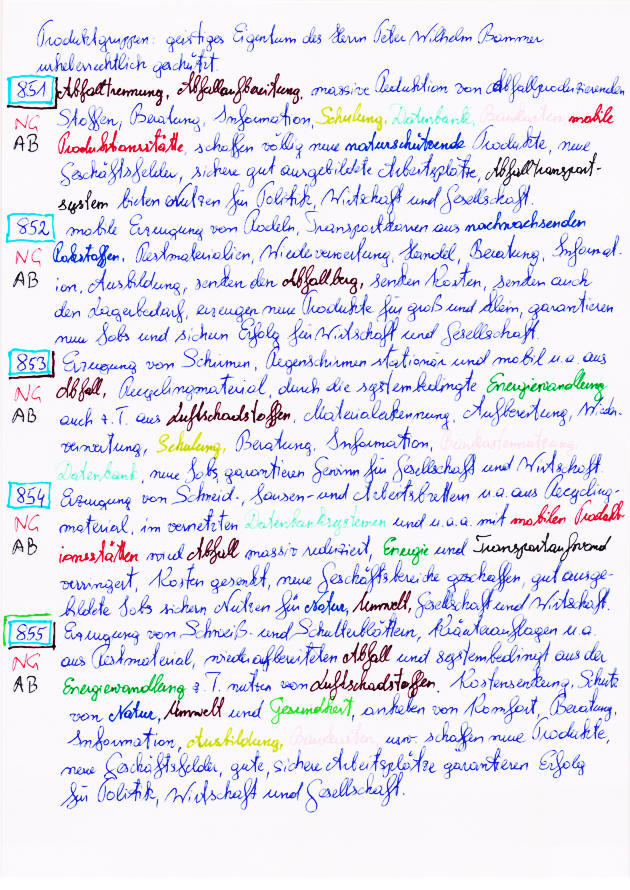 Produktgruppen: geistiges Eigentum des Herrn Peter Wilhelm Bammer
urheberrechtlich geschützt
851 Abfalltrennung, Abfallaufbereitung, massive Reduktion von Abfallproduzierenden
NG Stoffen, Beratung, Information, Schulung, Datenbank, Baukasten mobile
AB Produktionsstätte, schaffen völlig neue naturschützende Produkte, neue
Geschäftsfelder, sichere gut ausgebildete Arbeitsplätze, Abfalltransport-
system bieten Nutzen für Politik, Wirtschaft und Gesellschaft.
852 mobile Erzeugung von Rodeln, Transportkarren aus nachwachsenden
NG Rohstoffen, Restmaterialien, Wiederverwertung, Handel, Beratung, Informat-
AB ion, Ausbildung, senden den Abfallberg, senken Kosten, senken auch
den Lagerbedarf, erzeugen neue Produkte für groß und klein, garantieren
neue Jobs und sichern Erfolg für Wirtschaft und Gesellschaft.
853 Erzeugung von Schirmen, Regenschirmen stationär und mobil u.a. aus
NG Abfall, Recyclingmaterial, durch die systembedingte Energiewandlung
AB auch z.T. aus Luftschadstoffen, Materialerkennung, Aufbereitung, Wieder-
verwertung, Schulung, Beratung, Information, Baukastennutzung,
Datenbank, neue Jobs garantieren Gewinn für Gesellschaft und Wirtschaft.
854 Erzeugung von Schneid-, Jausen- und Arbeitsbrettern u.a. aus Recycling-
NG material, im vernetzten Datenbanksystemen und u.a.a. mit mobilen Produkt-
AB ionsstätten wird Abfall massiv reduziert, Energie und Transportaufwand
verringert, Kosten gesenkt, neue Geschäftsbereiche geschaffen, gut ausge-
bildete Jobs sichern Nutzen für Natur, Umwelt, Gesellschaft und Wirtschaft.
855 Erzeugung von Schweiß- und Schulterblättern, Kräuterauflagen u.a.
NG aus Restmaterial, wiederaufbereiteten Abfall und systembedingt aus der
AB Energiewandlung z.T. nutzen von Luftschadstoffen. Kostensenkung, Schutz
von Natur, Umwelt und Gesundheit, anheben von Komfort, Beratung,
Information, Ausbildung, Baukasten, usw. schaffen neue Produkte,
neue Geschäftsfelder, gute, sichere Arbeitsplätze garantieren Erfolg
für Politik, Wirtschaft und Gesellschaft.